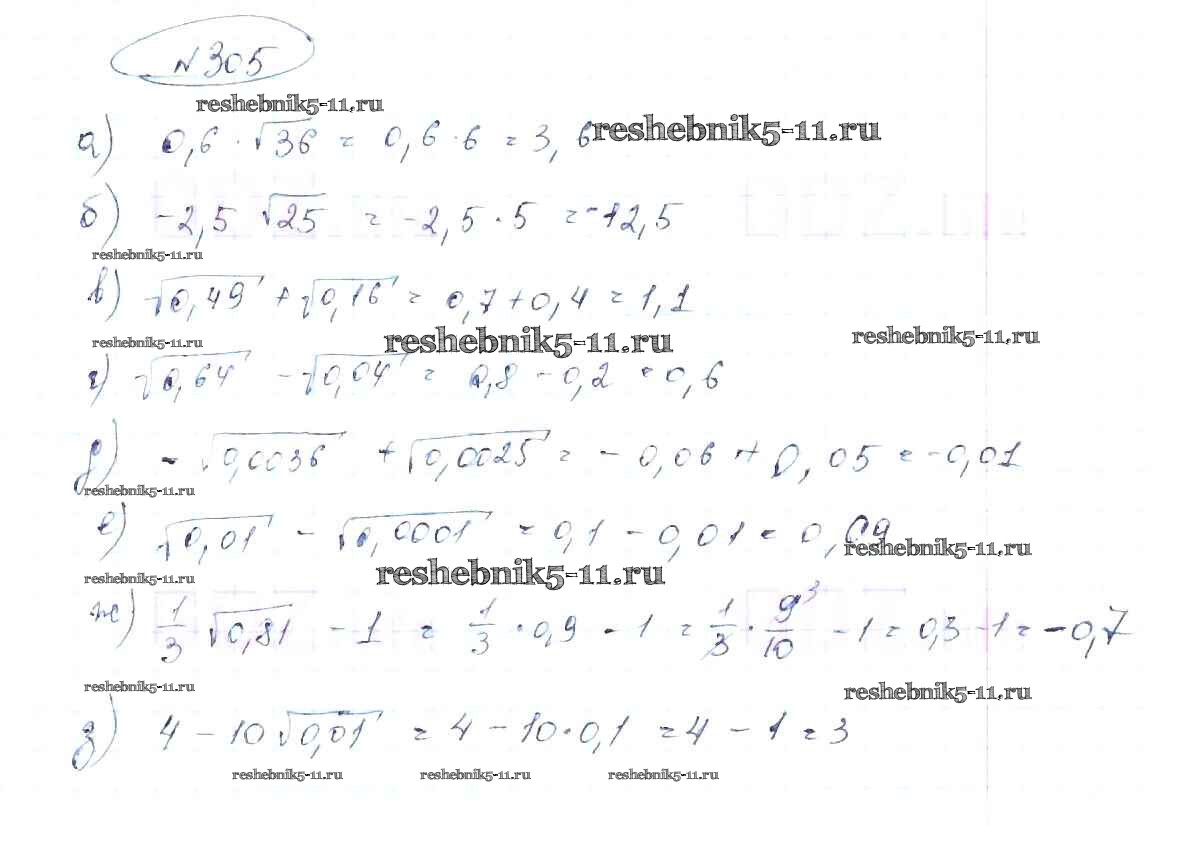 №305
reshebnik5-11.ru
а) 0,6 · √36 = 0,6 · 6 = 3,6 reshebnik5-11.ru
б) -2,5 √25 = -2,5 · 5 = -12,5
reshebnik5-11.ru
в) √0,49 + √0,16 = 0,7 + 0,4 = 1,1
reshebnik5-11.ru reshebnik5-11.ru reshebnik5-11.ru
г) √0,64 - √0,04 = 0,8 - 0,2 = 0,6
д) - √0,0036 + √0,0025 = - 0,06 + 0,05 = -0,01
reshebnik5-11.ru
е) √0,01 - √0,0001 = 0,1 - 0,01 = 0,09
reshebnik5-11.ru
reshebnik5-11.ru reshebnik5-11.ru
ж) 1/3 √0,81 - 1 = 1/3 · 0,9 - 1 = 1/3 · 9³/10 - 1 = 0,3 - 1 = -0,7
reshebnik5-11.ru reshebnik5-11.ru
з) 4 - 10 √0,01 = 4 - 10 · 0,1 = 4 - 1 = 3
reshebnik5-11.ru reshebnik5-11.ru reshebnik5-11.ru